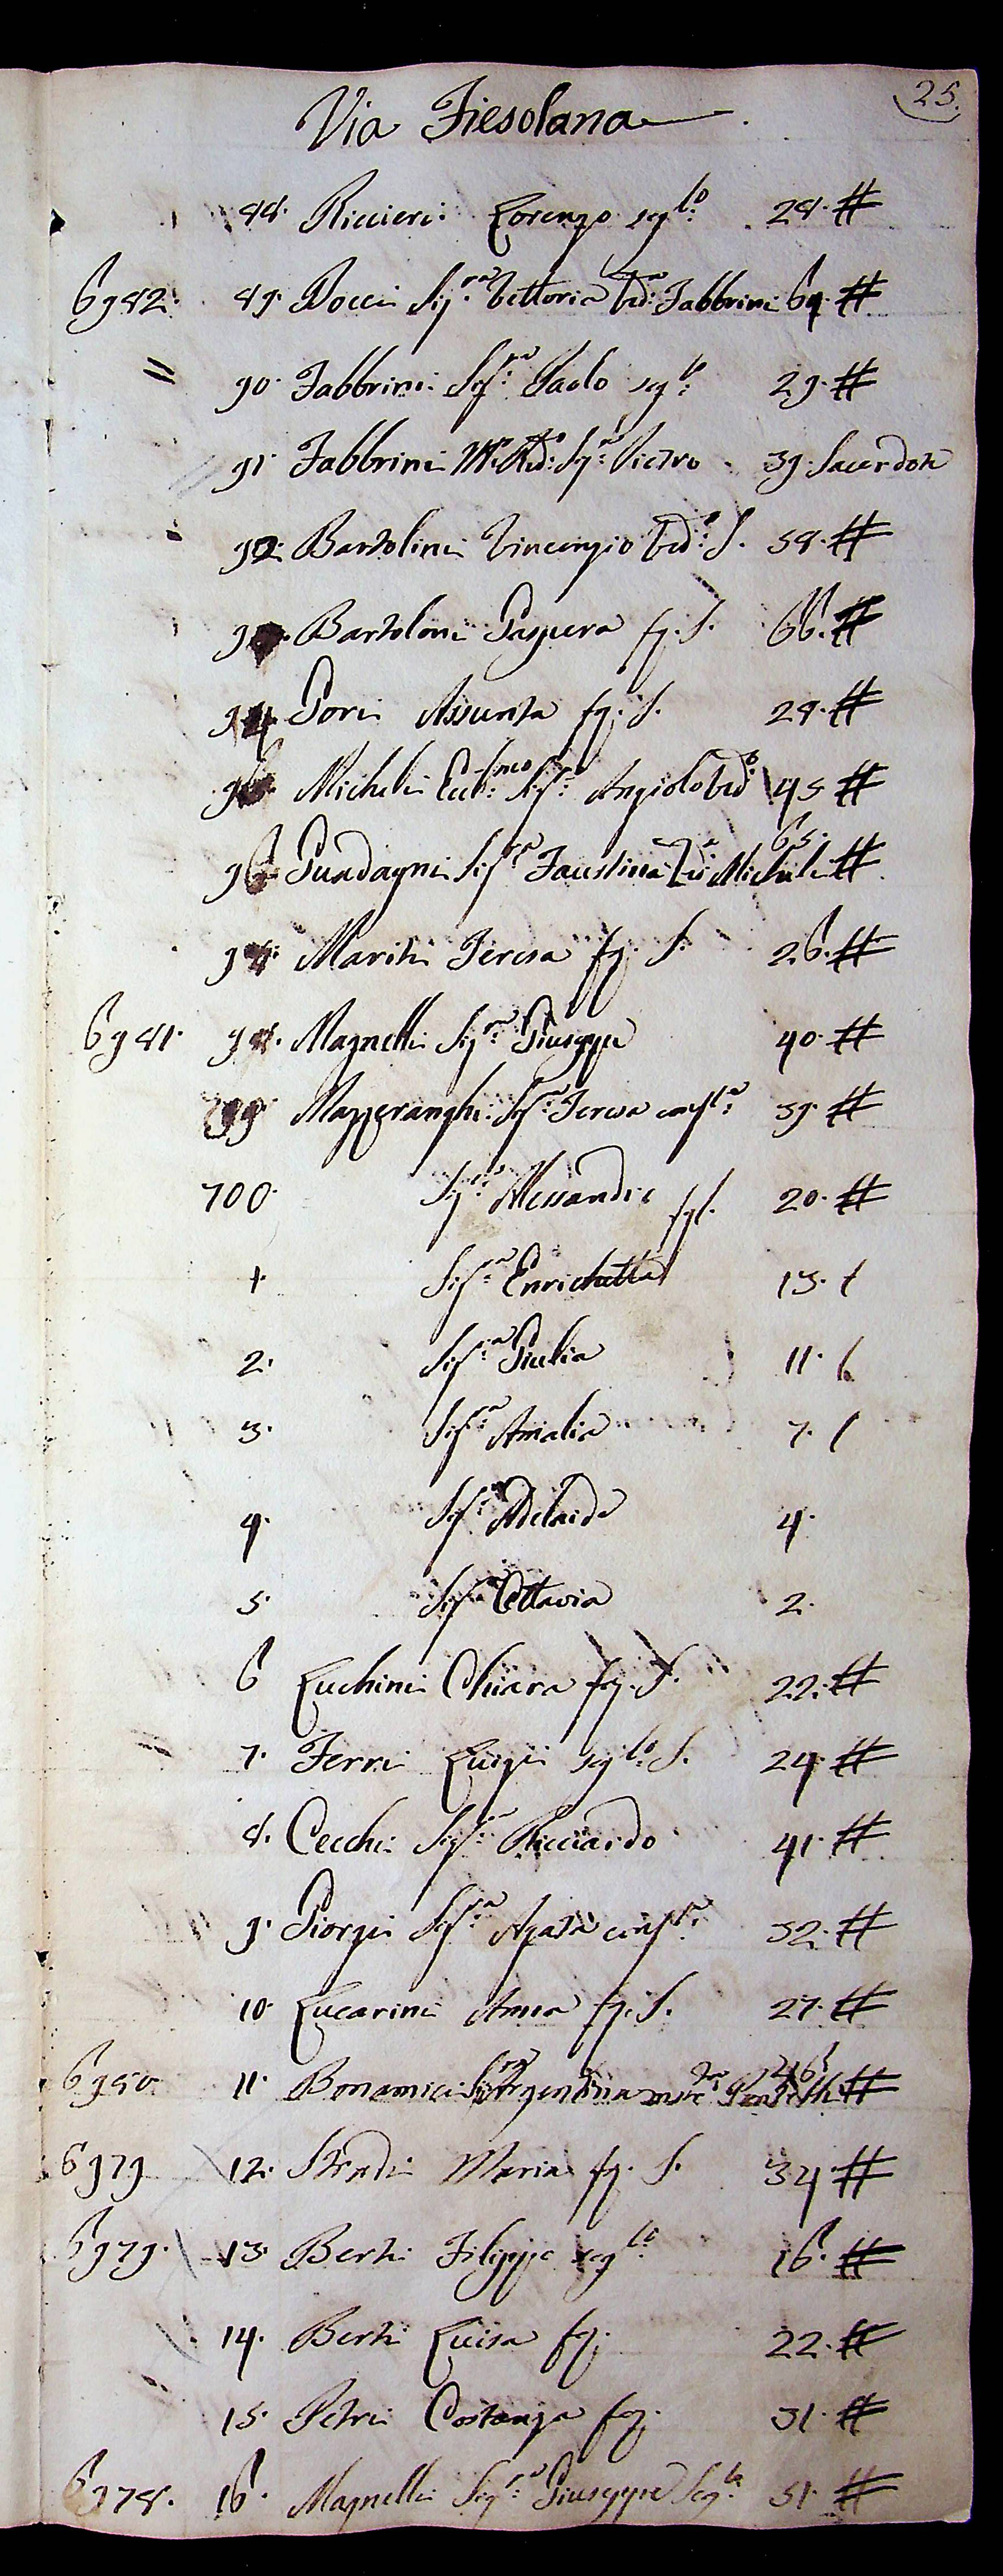 25.
Via Fiesolana
88. Riccieri Lorenzo scg.lo 28. #
6982. 89. Docci Sig.ra Vettoria Ved.a Fabbrini 64. #
= 90. Fabbrini Sig.re Paolo scg.lo 29. #
91. Fabbrini M.to Rd.o Sig.re Pietro 39. Sacerdote
92. Bartolini Vincenzio Ved.o S. 58. #
93. Bartoloni Gaspera fg. S. 66. #
94. Pori Assunta fg. S. 28. #
95. Micheli Ecc.mo Sig.re Angiolo Ved.o 45 #
96. Guadagni Sig.ra Faustina Ved.a Micheli 65. #
97. Mariti Teresa fg. S. 26. #
6981. 98. Magnelli Sig.re Giuseppe 40. #
699. Mazzeranghi Sig.ra Teresa conj.ta 39. #
700. Sig.re Alessandro fgl. 20. #
1. Sig.ra Enrichetta 13. (
2. Sig.ra Giulia 11. (
3. Sig.ra Amalia 7. (
4. Sig.ra Adelaide 4.
5. Sig.ra Ottavia 2.
6 Luchini Chiara fg. S. 22. #
7. Ferri Luigi scg.lo S. 24. #
8. Cecchi Sig.re Ricciardo 41. #
9. Giorgi Sig.ra Agata conj.ta 32. #
10. Lucarini Anna fg. S. 27. #
6980. 11. Bonamici Sig.ra Argentina 46 #
6979 12. Maria fg. S. 34. #
6979. 13. Berti Filippo scg.lo 16. #
14. Berti Luisa fg. 22. #
15. Petri Costanza fg. 31. #
6978. 16. Magnelli Sig.re Giuseppe Scg.lo 51. #